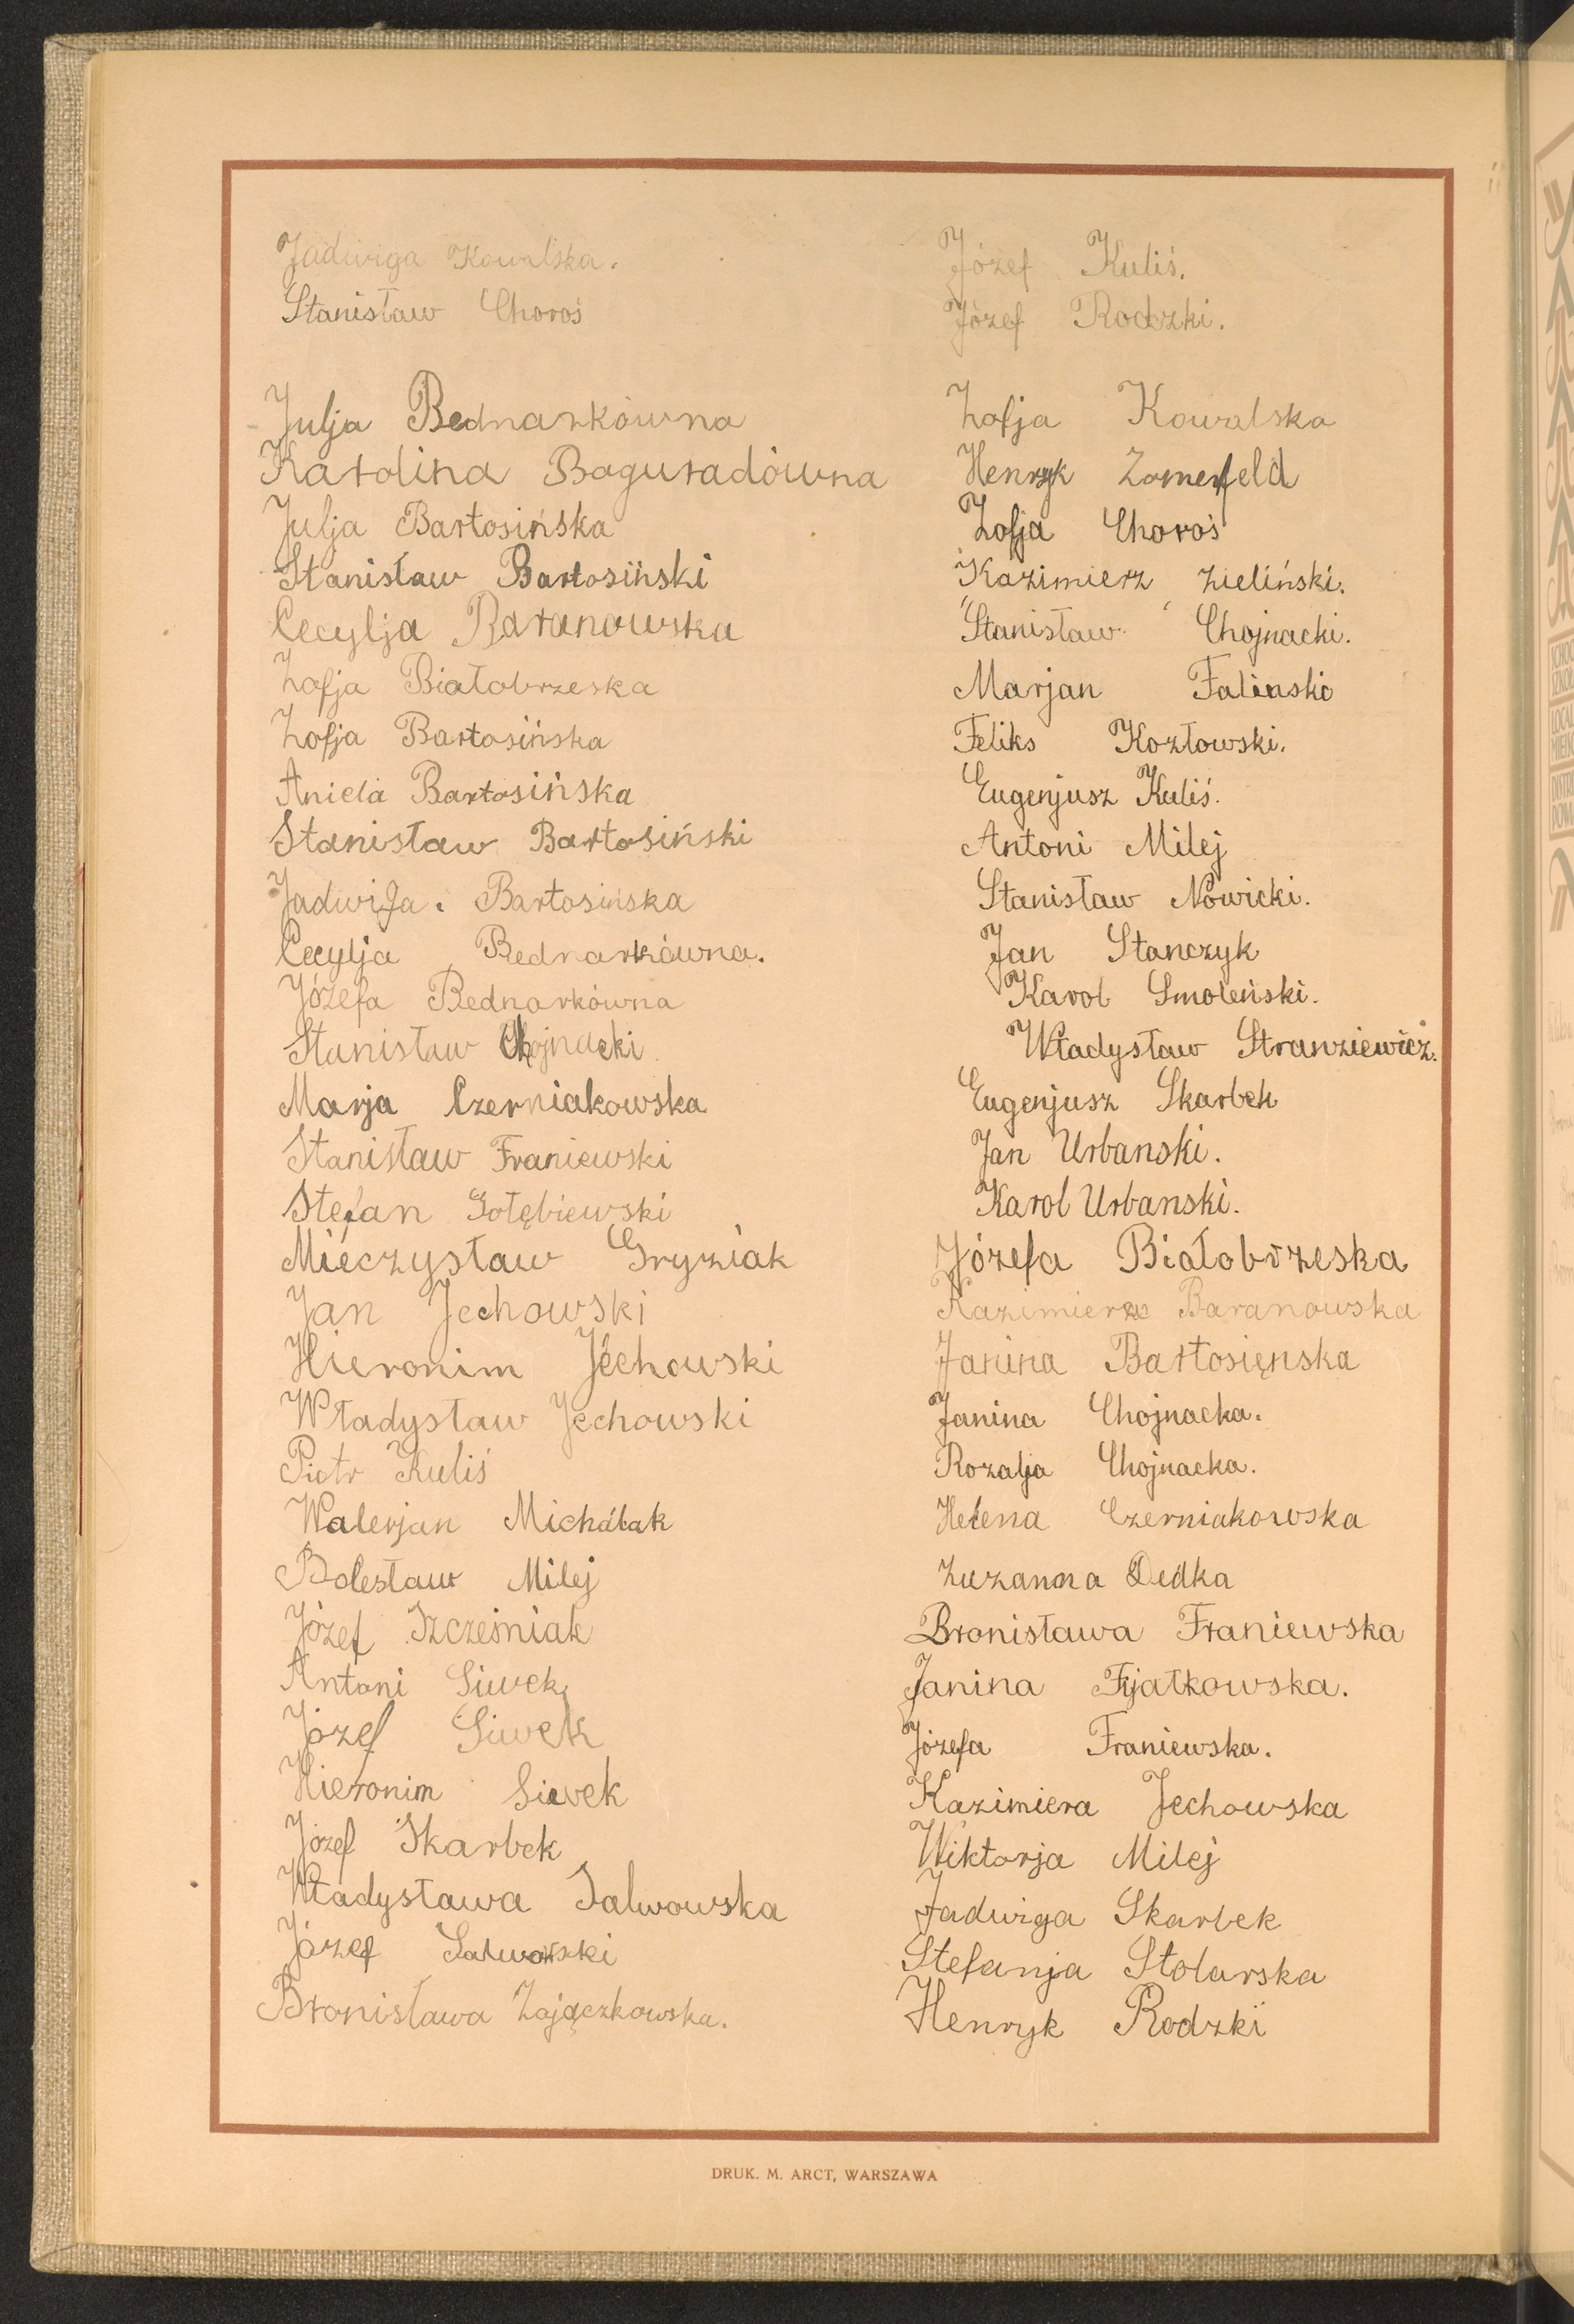 Jadwiga Kowalska.
Stanisław Choroś
Julja Bednarkówna
Karolina Boguradówna
Julja Bartosińska
Stanisław Bartosiński
Cecylja Baranowska
Zofja Białobrzeska
Zofja Bartosińska
Aniela Bartosińska
Stanisław Bartosiński
Jadwiga. Bartosińska
Cecylja Bednarkówna.
Józefa Bednarkówna
Stanisław Chojnacki
Marja Czerniakowska
Stanisław Franiewski
Stefan Gołębiewski
Mieczysław Gryziak
Jan Jechowski
Hieronim Jechowski
Władysław Jechowski
Piotr Kuliś
Walerjan Michalak
Bolesław Milej
Józef Szcześniak
Antoni Siwek
Józef Siwek
Hieronim Siwek
Józef Skarbek
Władysława Salwowska
Józef Salwowski
Bronisława Zajączkowska.
Józef Kuliś.
Józef Rodzki.
Zofja Kowalska
Henryk Zomerfeld
Zofja Choroś
Kazimierz Zieliński.
Stanisław Chojnacki.
Marjan Falinski
Feliks Kozłowski.
Eugenjusz Kuliś.
Antoni Milej
Stanisław Nowicki.
Jan Stanczyk
Karol Smoleński.
Władysław Stranziewicz.
Eugenjusz Skarbek
Jan Urbanski.
Karol Urbanski.
Józefa Białobrzeska
Kazimiera Baranowska
Janina Bartosięnska
Janina Chojnacka.
Rozalja Chojnacka.
Helena Czerniakowska
Zuzanna Dedka
Bronisława Franiewska
Janina Fijałkowska.
Józefa Franiewska.
Kazimiera Jechowska
Wiktorja Milej
Jadwiga Skarbek
Stefanja Stolarska
Henryk Rodzki
DRUK. M. ARCT, WARSZAWA